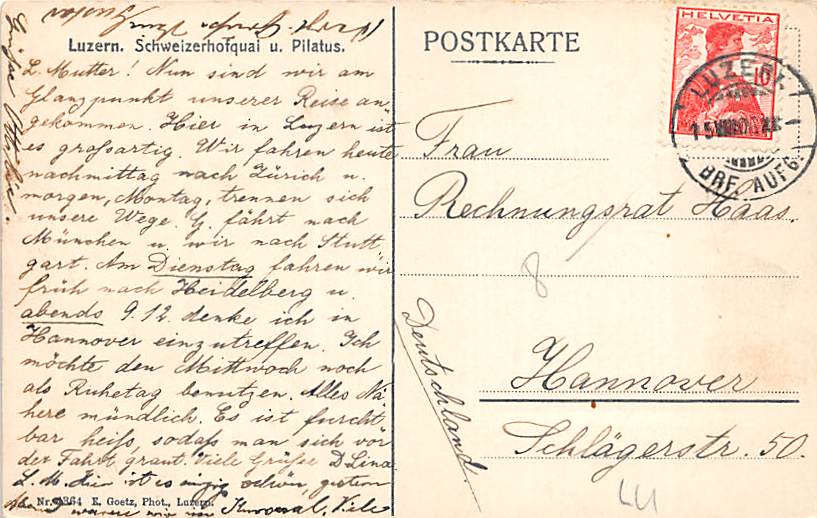 Luzern. Schweizerhofquai u. Pilatus.
L. Mutter! Nun sind wir am
Glanzpunkt unserer Reise an-
gekommen. Hier in Luzern ist
es großartig. Wir fahren heute
nachmittag nach Zürich u.
morgen, Montag, trennen sich
unsere Wege. G. fährt nach
München u. wir nach Stutt
gart. Am Dienstag fahren wir
früh nach Heidelberg u.
abends 9.12. denke ich in
Hannover einzutreffen. Ich
möchte den Mittwoch noch
als Ruhetag benutzen. Alles Nä
here mündlich. Es ist furcht
bar heiß, sodaß man sich vor
der Fahrt graut. Viele Grüße D. Lina
L. M. hier ist es schön, gestern
waren wir im Kursaal, Viele
Grüße
Nr. 1364 E. Goetz, Phot., Luzern.
POSTKARTE
HELVETIA
10
LUZERN
BRF. AUFG.
Frau
Rechnungsrat Haas.
8
Hannover
Schlägerstr. 50.
Deutschland.
LU